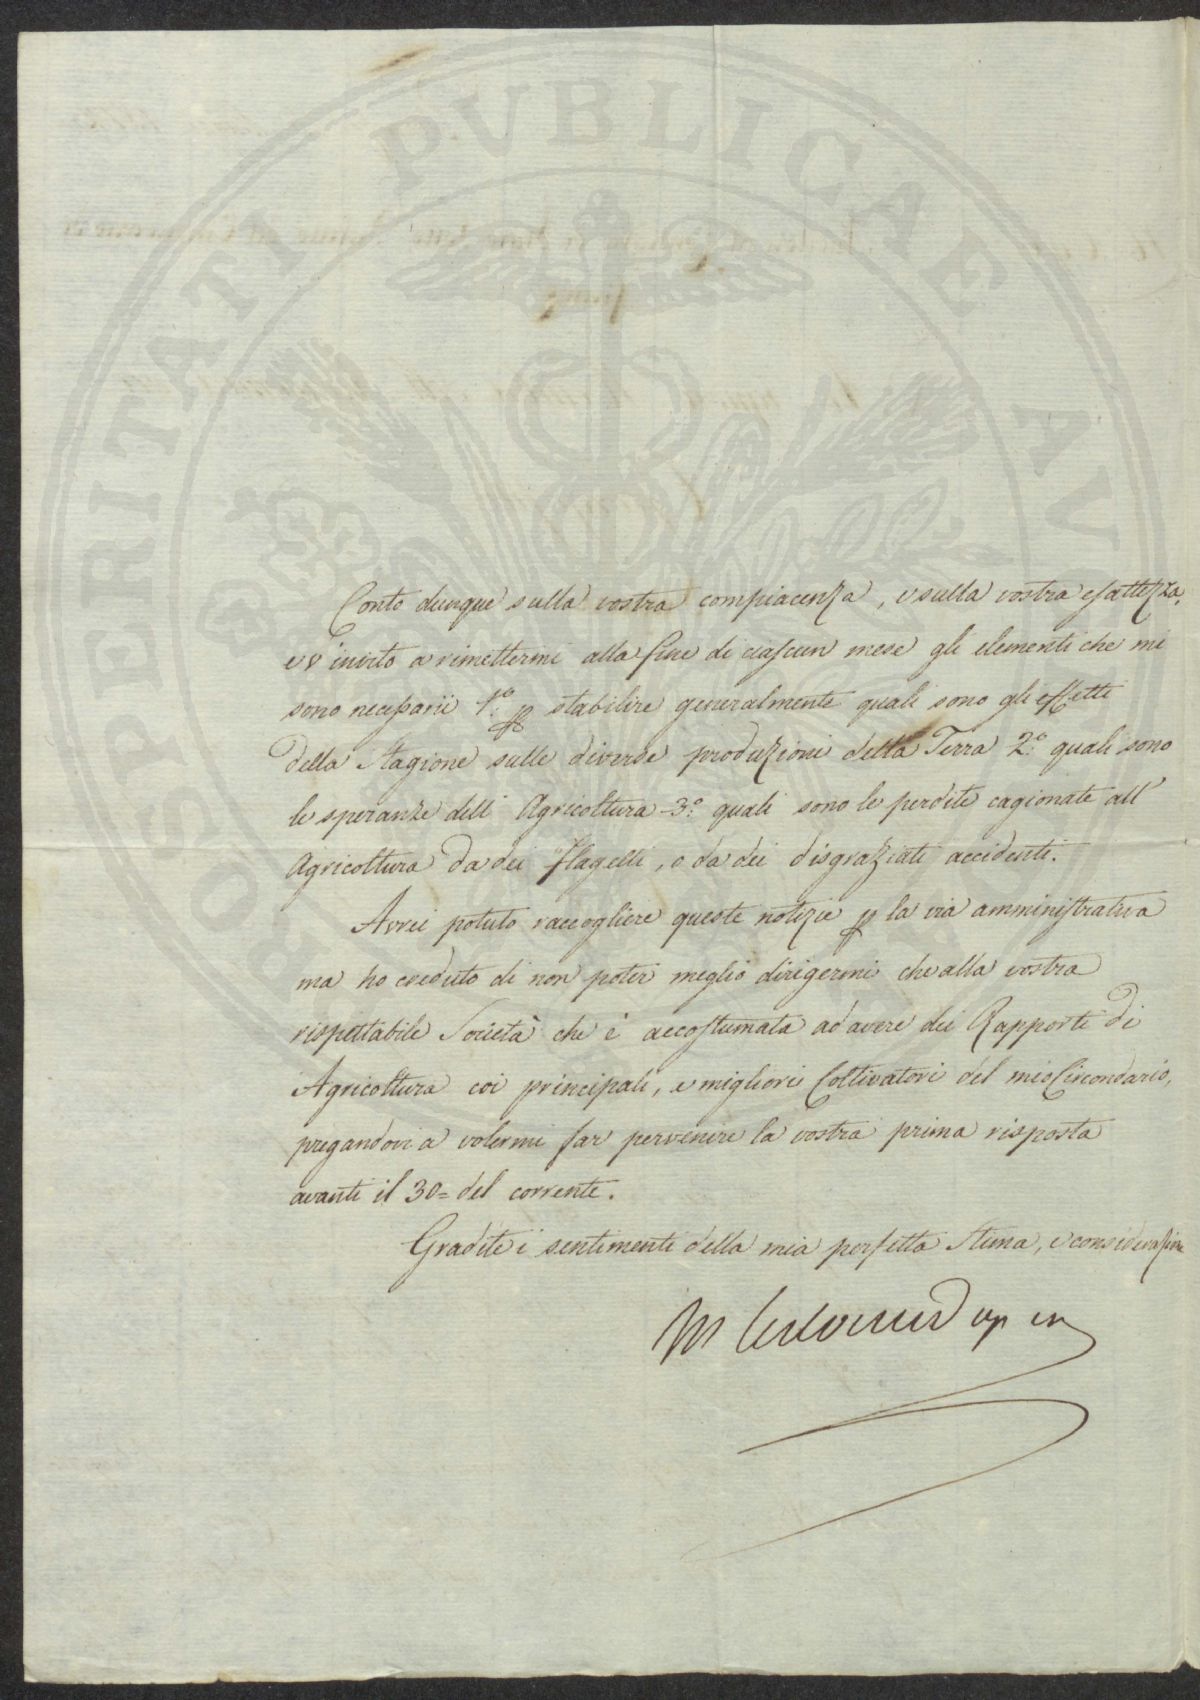 PROSPERITATI PUBLICAE AU
Conto dunque sulla vostra compiacenza, e sulla vostra esattezza,
e v'invito a rimettermi alla fine di ciascun mese gli elementi che mi
sono necessarii 1.° p stabilire generalmente quali sono gli effetti
della Stagione sulle diverse produzioni della Terra 2.° quali sono
le speranze dell'Agricoltura - 3.° quali sono le perdite cagionate all'
Agricoltura da dei Flagelli, o da dei disgraziati accidenti.
Avrei potuto raccogliere queste notizie p la via amministrativa
ma ho creduto di non poter meglio dirigermi che alla vostra
rispettabile Società che è accostumata ad avere dei Rapporti di
Agricoltura coi principali, e migliori Coltivatori del mio Circondario,
pregandovi a volermi far pervenire la vostra prima risposta
avanti il 30= del corrente.
Gradite i sentimenti della mia perfetta Stima, e considerazione